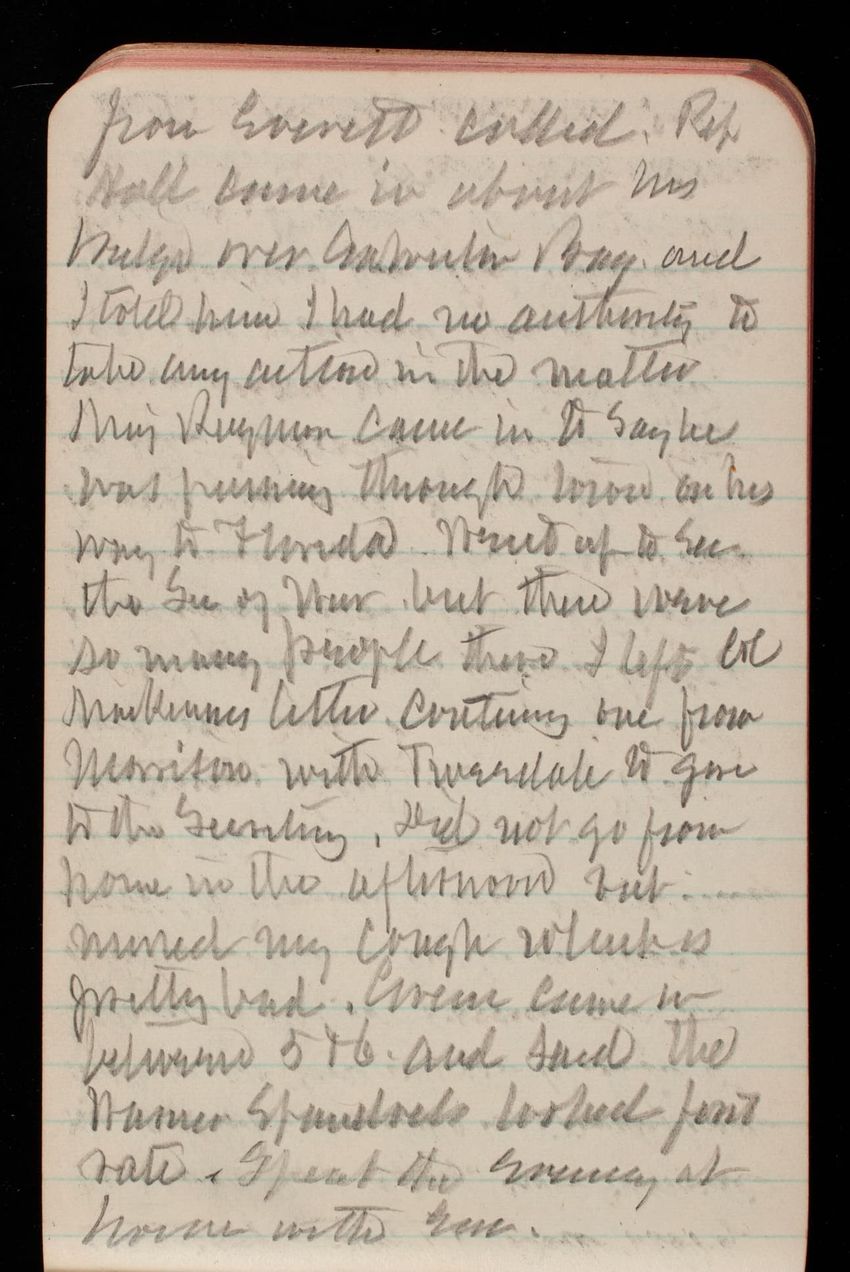 from Everett called. Rep
Hall came in about his
bridge over Galveston Bay and
I told him I had no authority to
take any action in the matter
Maj came in to say he
was passing through town on his
way to Florida. Went up to see
the Sec of War but there were
so many people there I left Col
letter containing one from
Morrison with Truesdale to give
to the Secretary. Did not go from
home in the afternoon but
nursed my cough which is
pretty bad. Green came in
between 5 & 6 and said the
Warner Spandrels looked first
rate. Spent the evening at
home with